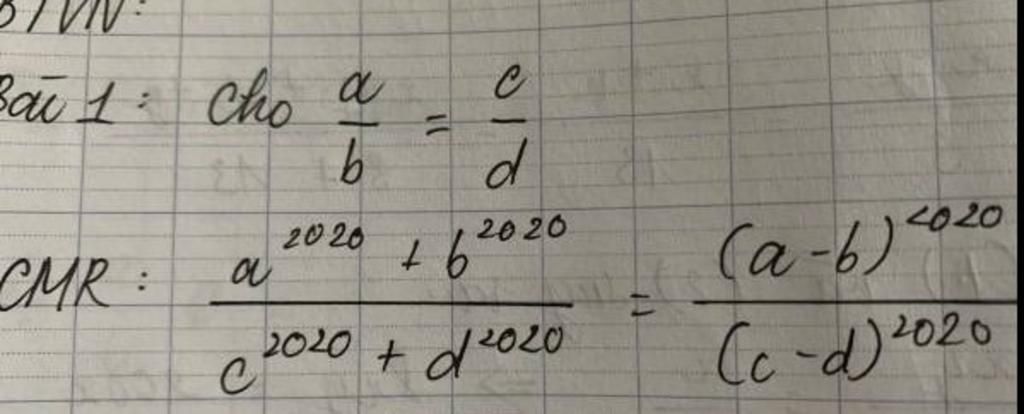 BTVN:
Bài 1: Cho a/b = c/d
CMR: (a^2020 + b^2020)/(c^2020 + d^2020) = (a-b)^2020/(c-d)^2020